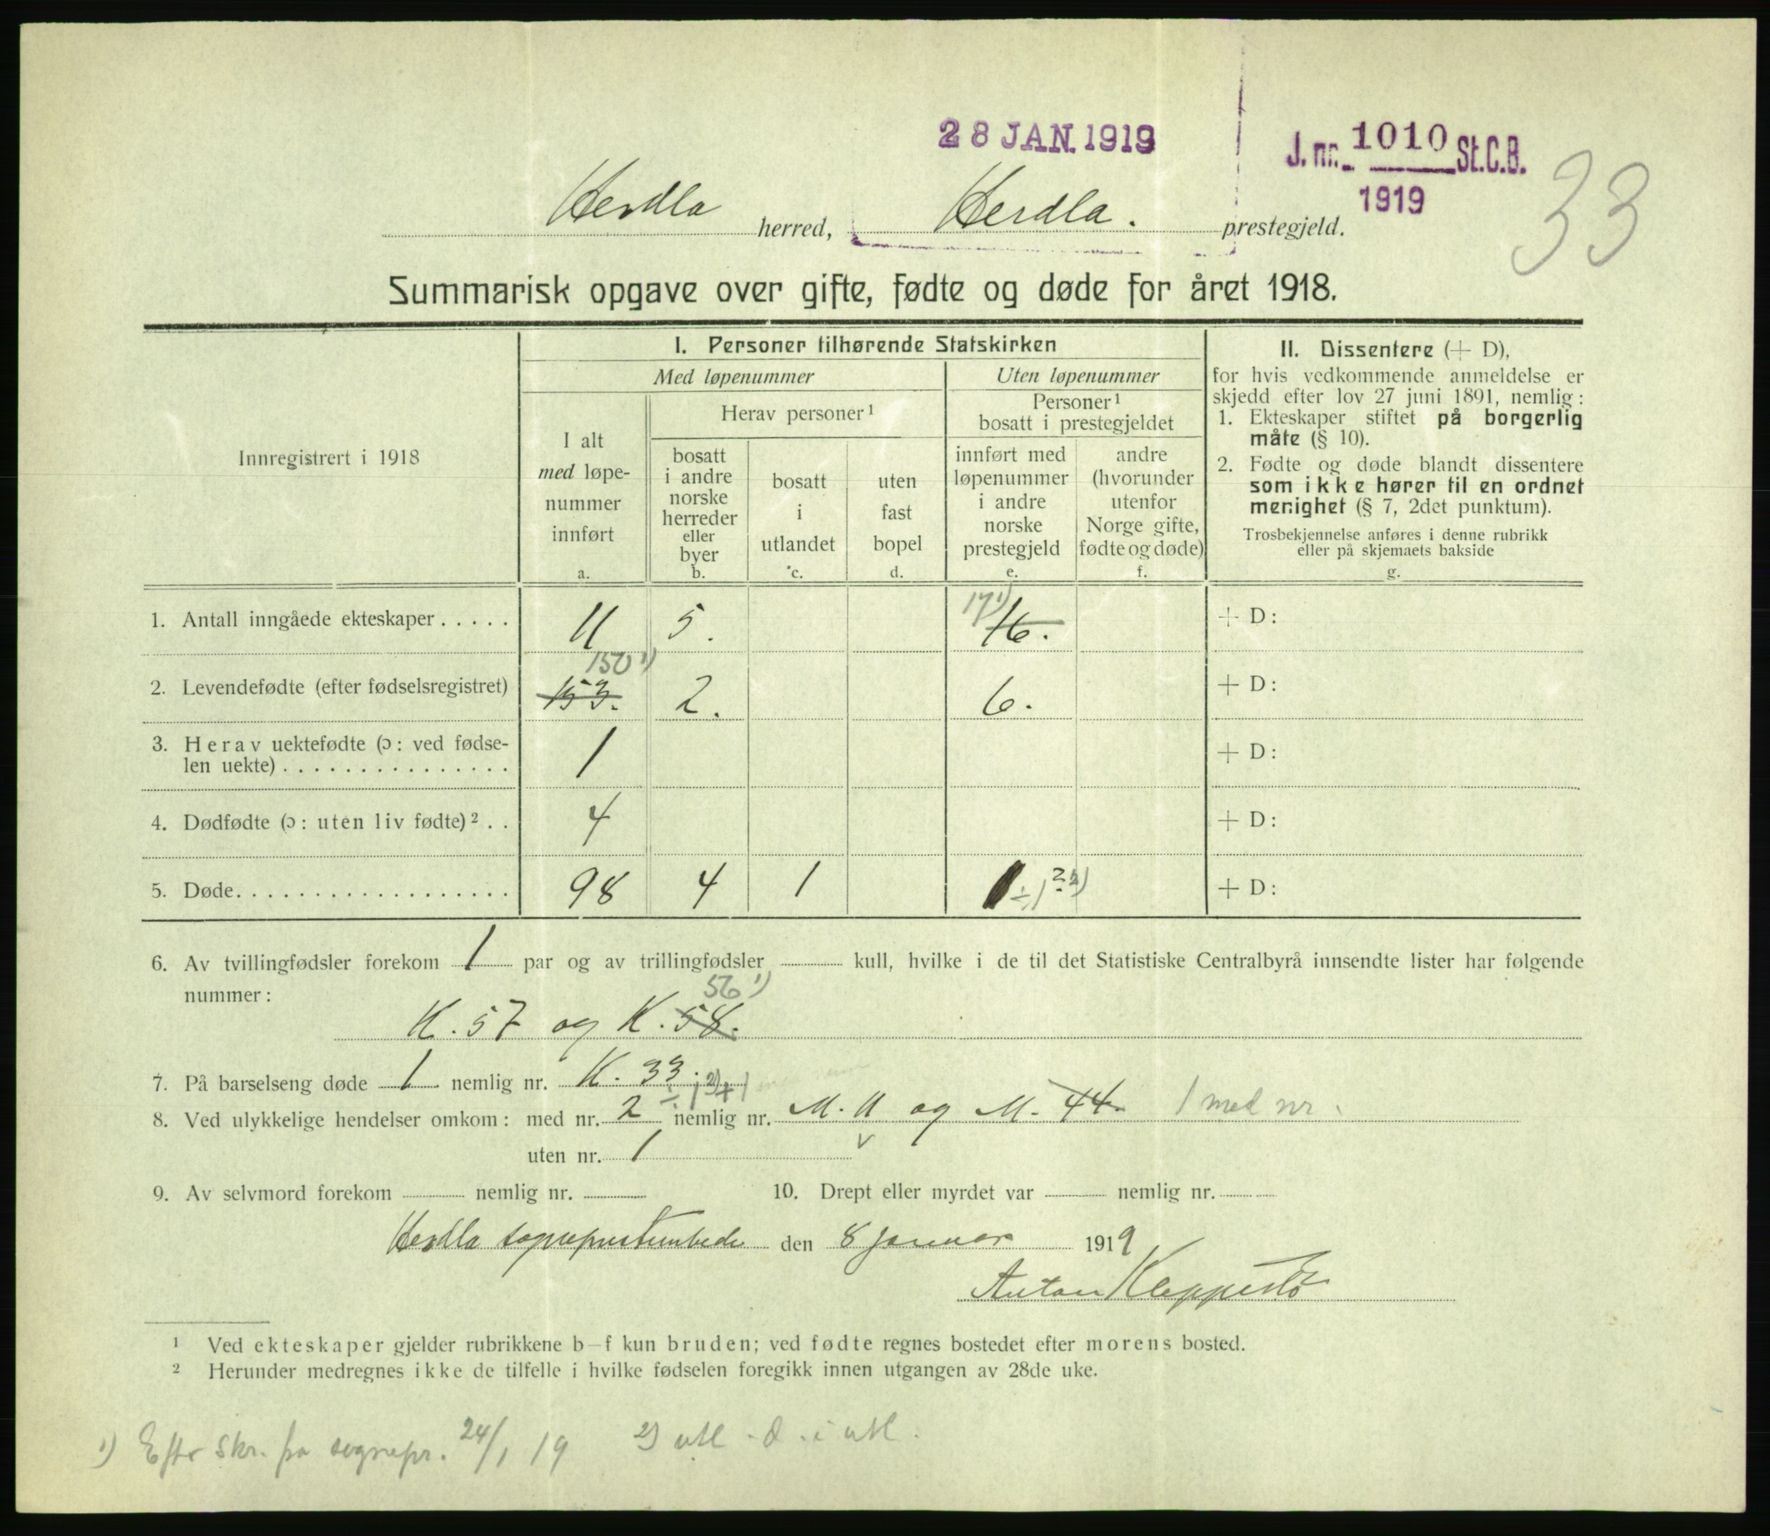 28 JAN. 1919
J. nr. 1010 St.C.B.
1919
33
Herdla herred, Herdla. prestegjeld.
Summarisk opgave over gifte, fødte og døde for året 1918.
Innregistrert i 1918
I. Personer tilhørende Statskirken
Med løpenummer
Uten løpenummer
I alt
med løpe-
nummer
innført
a.
Herav personer ¹
bosatt
i andre
norske
herreder
eller
byer
b.
bosatt
i
utlandet
c.
uten
fast
bopel
d.
Personer ¹
bosatt i prestegjeldet
innført med
løpenummer
i andre
norske
prestegjeld
e.
andre
(hvorunder
utenfor
Norge gifte,
fødte og døde)
f.
II. Dissentere (+ D),
for hvis vedkommende anmeldelse er
skjedd efter lov 27 juni 1891, nemlig:
1. Ekteskaper stiftet på borgerlig
måte (§ 10).
2. Fødte og døde blandt dissentere
som ikke hører til en ordnet
menighet (§ 7, 2det punktum).
Trosbekjennelse anføres i denne rubrikk
eller på skjemaets bakside
g.
1. Antall inngåede ekteskaper . . . . . 11 5. 17 ¹) 16. + D:
150 ¹)
2. Levendefødte (efter fødselsregistret) 153. 2. 6. + D:
3. Herav uektefødte (ɔ: ved fødse-
len uekte) . . . . . . . . . . . . . . . 1 + D:
4. Dødfødte (ɔ: uten liv fødte) ² . . 4 + D:
5. Døde. . . . . . . . . . . . . . . . . . 98 4 1 1 ÷1 ²) + D:
6. Av tvillingfødsler forekom 1 par og av trillingfødsler kull, hvilke i de til det Statistiske Centralbyrå innsendte lister har følgende
nummer:
56 ¹)
K. 57 og K. 58.
7. På barselseng døde 1 nemlig nr. K. 33.
÷1 ²) +1
8. Ved ulykkelige hendelser omkom: med nr. 2 nemlig nr. M. 11 og M. 44. 1 med nr.
uten nr. 1 v
9. Av selvmord forekom nemlig nr. 10. Drept eller myrdet var nemlig nr.
Herdla sogneprestembede den 8 januar 1919
Anton Kleppestø
¹ Ved ekteskaper gjelder rubrikkene b–f kun bruden; ved fødte regnes bostedet efter morens bosted.
² Herunder medregnes ikke de tilfelle i hvilke fødselen foregikk innen utgangen av 28de uke.
¹) Efter skr. fra sognepr. 24/1 19 ²) utl. d. i utl.